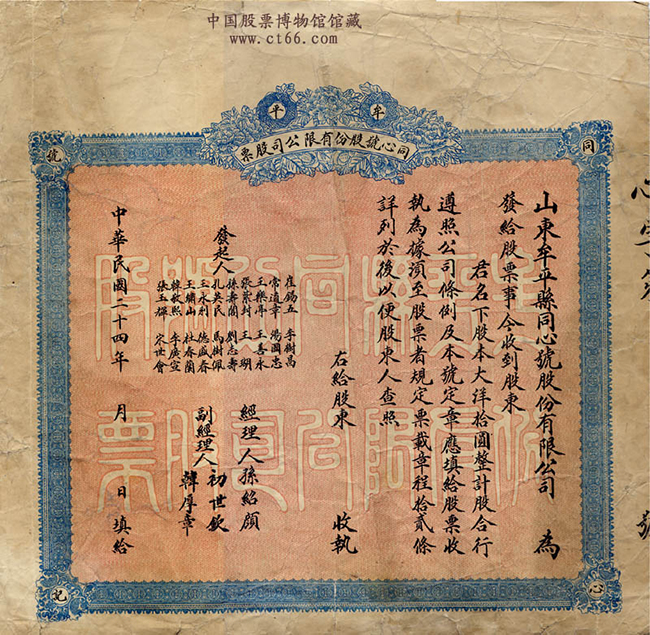 中国股票博物馆馆藏
www.ct66.com
牟平
同心號股份有限公司股票
同
心
號
記
山東牟平縣同心號股份有限公司 為
發給股票事今收到股東
君名下股本大洋拾圓整計股合行
遵照公司條例及本號定章應填給股票收
執為據須至股票者規定票載章程拾貳條
詳列於後以便股東人查照
右給股東 收執
發起人
崔錫五 李樹昌
常道章 湯國忠
王樂亭 王善永
張紫封 王明
孫壽蘭 劉志壽
孔英民 馬樹佩
王永利 德盛春
王鏞山 杜春蘭
韓敬熙 牟廣空
張玉璞 宋世會
經理人 孫紹顏
副經理人 初世欽
韓厚章
中華民國二十四年 月 日填給